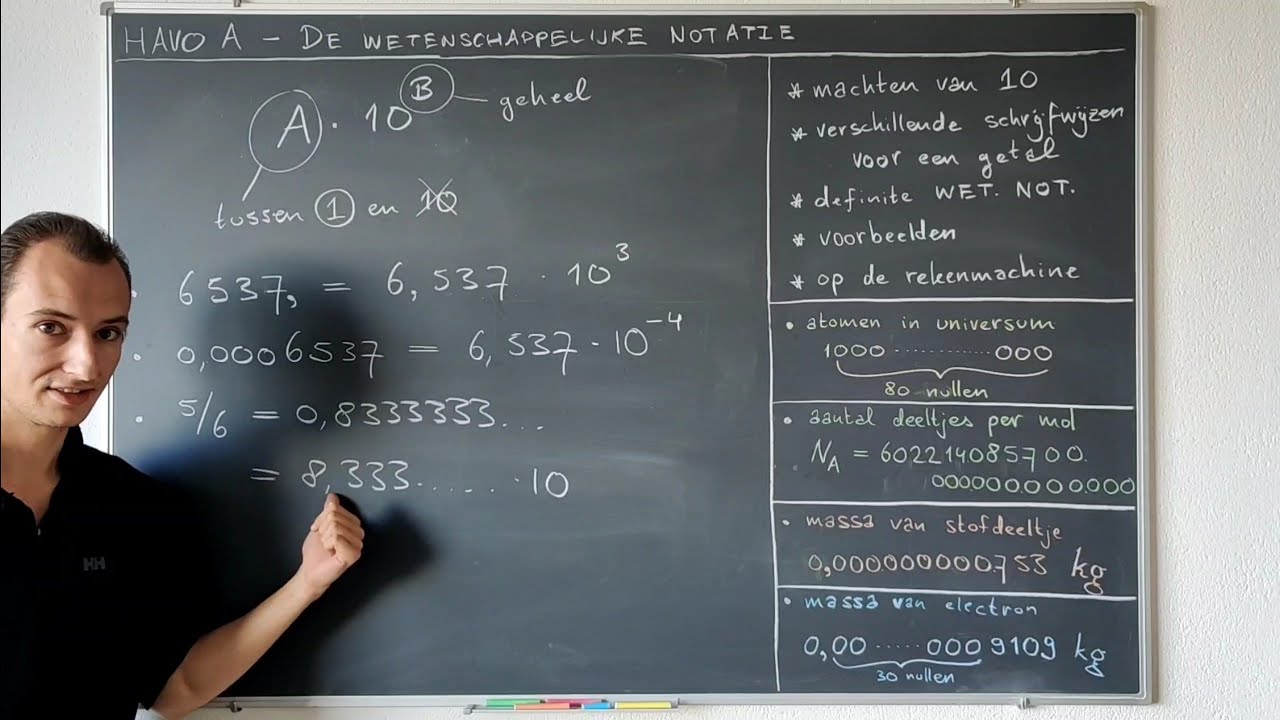 HAVO A – DE WETENSCHAPPELIJKE NOTATIE
A · 10^B geheel
tussen 1 en 10
· 6537, = 6,537 · 10^3
· 0,0006537 = 6,537 · 10^-4
· 5/6 = 0,8333333...
= 8,333...... · 10
* machten van 10
* verschillende schrijfwijzen
voor een getal
* definite WET. NOT.
* voorbeelden
* op de rekenmachine
• atomen in universum
1000 ............... 000
80 nullen
• aantal deeltjes per mol
N_A = 602214085700.
000.000.000.000
• massa van stofdeeltje
0,000000000753 kg
• massa van electron
0,00 ..... 0009109 kg
30 nullen
HH